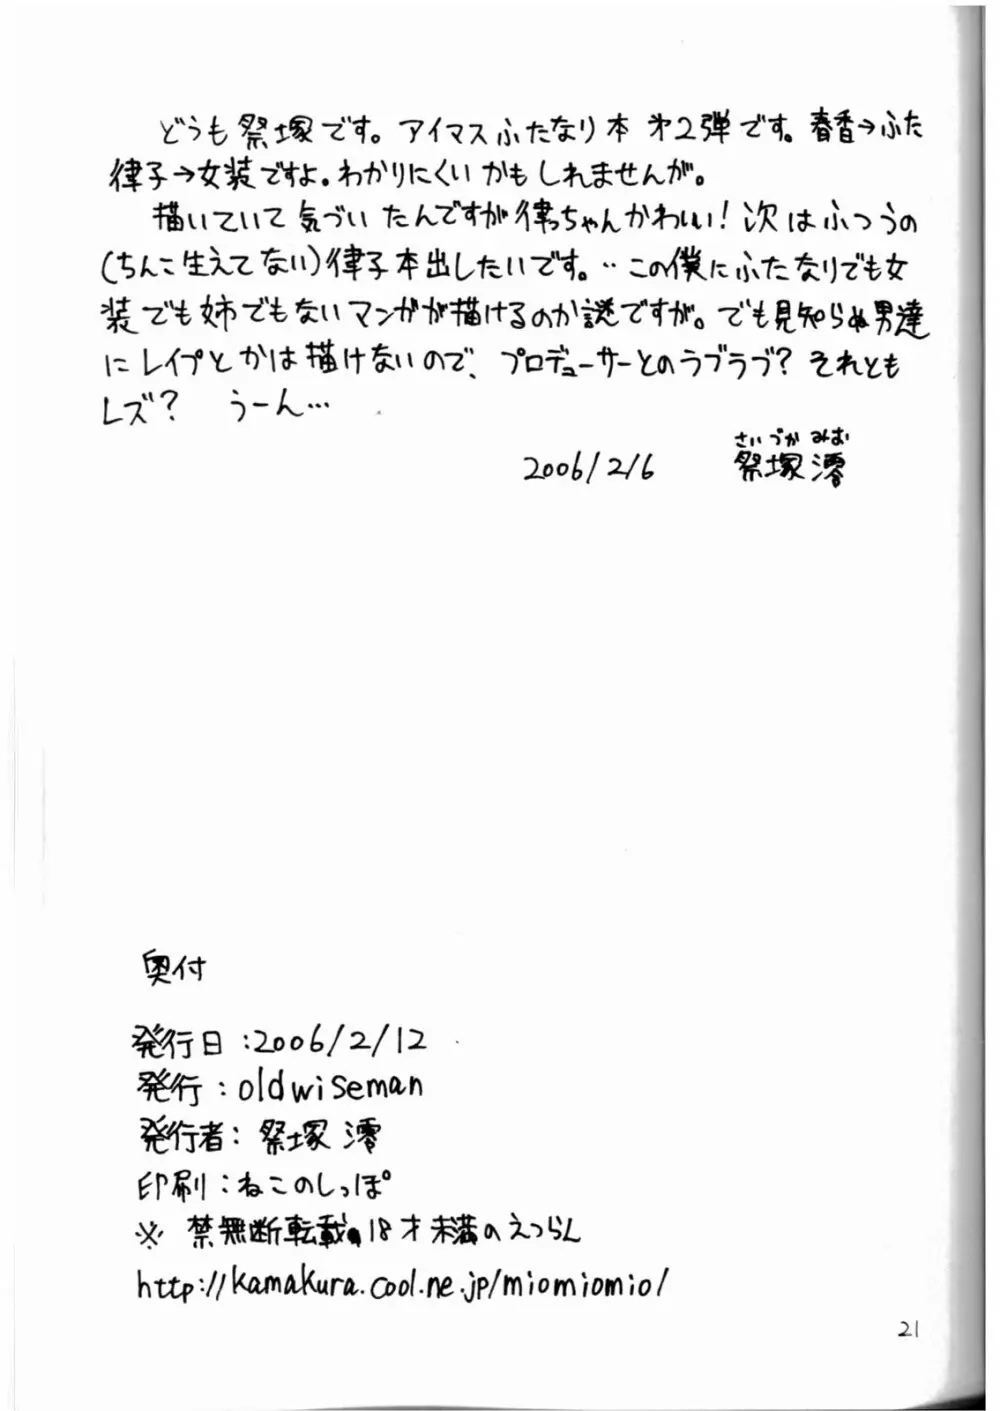 どうも祭塚です。アイマスふたなり本才2弾です。春香→ふた
律子→女装ですよ。わかりにくいかもしれませんが。
描いていて気づいたんですが律っちゃんかわいい!次はふつうの
(ちんこ生えてない)律子本出したいです。‥この僕にふたなりでも女
装でも姉でもないマンガが描けるのか謎ですが。でも見知らぬ男達
にレイプとかは描けないので、プロデューサーとのラブラブ?それとも
レズ? うーん…
さいづかみお
2006/2/6 祭塚澪
奥付
発行日:2006/2/12
発行:oldwiseman
発行者:祭塚澪
印刷:ねこのしっぽ
※禁無断転載、18才未満のえつらん
http://kamakura.cool.ne.jp/miomiomio/
21